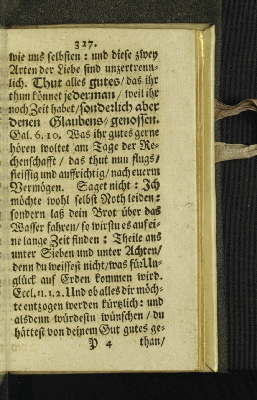 327.
wie uns selbsten: und diese zwey
Arten der Liebe sind unzertrenn-
lich. Thut alles gutes/ das ihr
thun könnet jederman/ weil ihr
noch Zeit habet/ sonderlich aber
denen Glaubens/ genossen.
Gal. 6, 10. Was ihr gutes gerne
hören woltet am Tage der Re-
chenschafft/ das thut nun flugs/
fleissig und auffrichtig/ nach euerm
Vermögen. Saget nicht: Ich
möchte wohl selbst Noth leiden:
sondern laß dein Brot über das
Wasser fahren/ so wirstu es auf ei-
ne lange Zeit finden: Theile aus
unter Sieben und unter Achten/
denn du weissest nicht/ was für Un-
glück auf Erden kommen wird.
Eccl. 11. 1, 2. Und ob alles dir möch-
te entzogen werden kürtzlich: und
alsdenn würdestu wünschen/ du
hättest von deinem Gut gutes ge-
P 4 than/